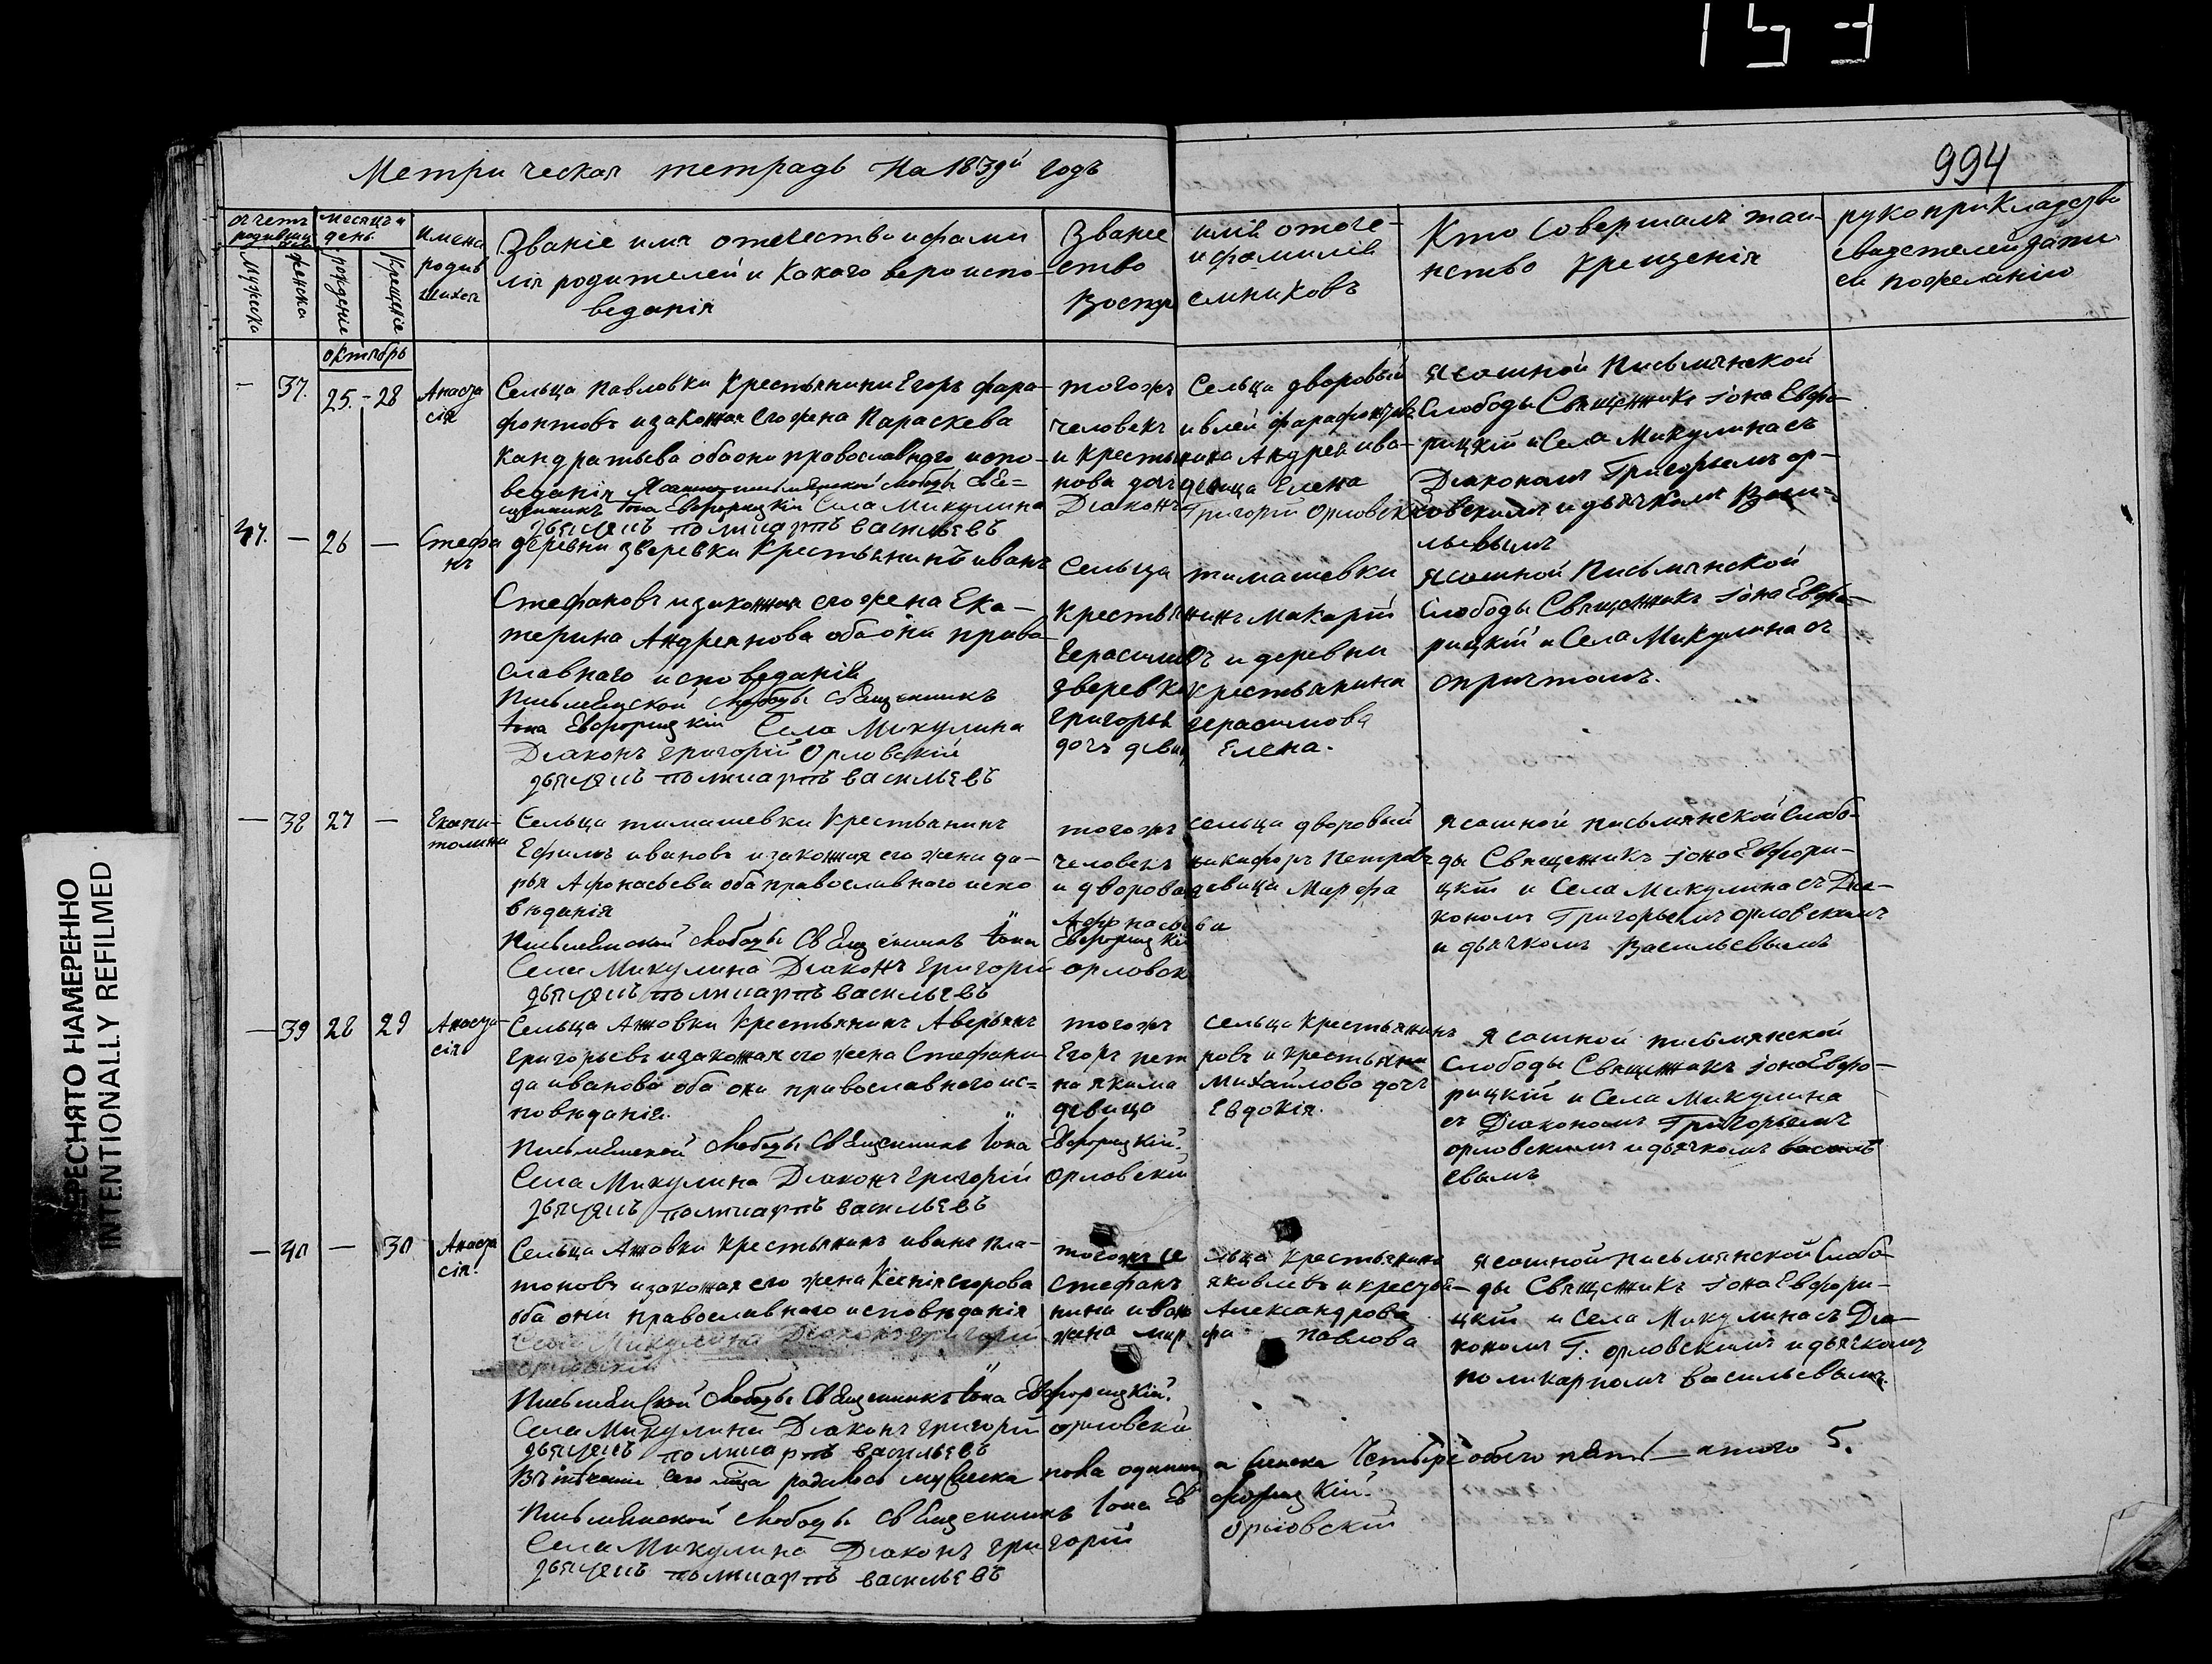 153
994
Метрическая тетрадь На 1839й годъ
щетъ родившихся
мужеска
женска
месяцъ и день
рождение
крещение
имена родившихся
Званіе имя отечество и фами-
лія родителей и Какого вероиспо-
веданія
Званіе имя отече-
ство и фамилія
Воспріемниковъ
Кто Совершалъ таи-
нство Крещенія
рукоприкладство
свидетелей записи
по желанію
октябрь
— 37. 25.-28 Анаста
сія
Сельца Павловки Крестьянинъ Егоръ фара-
фонтовъ и законная его жена Параскева
Кандратьева оба они православнаго испо-
веданія Ясашной письмянской слободы Свя-
щенникъ Іона Евфорицкій Села Микулина
дьячекъ поликарпъ васильевъ
тогожъ Сельца дворовый
человекъ ивлей фарафонтовъ
и Крестьянина Андрея ива-
нова дочь девица Елена
Діаконъ Григорій Орловскій
Ясашной Письмянской
Слободы Священникъ Іона Евфо-
рицкій и Села Микулина съ
Діакономъ Григорьемъ ор-
ловскимъ и дьячкомъ Васи-
льевымъ
47. — 26 — Стефа
нъ
деревни зверевки Крестьянинъ иванъ
Стефановъ и законная его жена Ека-
терина Андреянова оба они право-
славнаго исповеданія
Письмянской слободы Священникъ
Іона Евфорицкій Села Микулина
Діаконъ григорій Орловскій
дьячекъ поликарпъ васильевъ
Сельца тимашевки
Крестьянинъ Макарій
Герасимовъ и деревни
зверевки Крестьянина
григорья герасимова
дочь девица Елена.
Ясашной Письмянской
Слободы Священникъ Іона Евфо-
рицкій и Села Микулина съ
опричтомъ.
— 38 27 — Екапи-
толина
Сельца тимашевки Крестьянинъ
Ефимъ ивановъ и законная его жена да-
рья Афонасьева оба православнаго испо
вѣданія
Письмянской слободы Священникъ Іона Евфорицкій
Села Микулина Діаконъ григорій орловск
дьячекъ поликарпъ васильевъ
тогожъ сельца дворовый
человекъ никифоръ Петровъ
и дворовая девица Марфа
Афонасьева
Ясашной письмянской Слобо-
ды Священникъ Іона Евфори-
цкій и Села Микулина съ Діа-
кономъ Григорьемъ орловскимъ
и дьячкомъ Васильевымъ
— 39 28 29 Анаста-
сія
Сельца Анновки Крестьянинъ Аверьянъ
григорьевъ и законная его жена Стефани-
да иванова оба они православнаго ис-
повѣданія.
Письмянской слободы Священникъ Іона Евфорицкій.
Села Микулина Діаконъ григорій Орловскій
дьячекъ поликарпъ васильевъ
тогожъ сельца Крестьянинъ
Егоръ петровъ и крестьяни
на якима михайлова дочь
девица Евдокія.
Ясашной письмянской
слободы Священникъ Іона Евфо-
рицкій и Села Микулина
съ Діакономъ Григорьемъ
орловскимъ и дьячкомъ василь
евымъ
— 40 — 30 Анаста
сія.
Сельца Анновки Крестьянинъ иванъ пла-
тоновъ и законная его жена Ксенія егорова
оба они православнаго исповѣданія
Села Микулина Діаконъ григорій
орловскій
Письмянской слободы Священникъ Іона Евфорицкій.
Села Микулина Діаконъ григорій орловскій
дьячекъ поликарпъ васильевъ
тогожъ сельца Крестьянинъ
Стефанъ яковлевъ и крестья-
нина ивана Александрова
жена марфа павлова
Ясашной письмянской Слобо-
ды Священникъ Іона Евфори-
цкій и Села Микулина съ Діа-
кономъ Г. орловскимъ и дьячкомъ
поликарпомъ васильевымъ.
Въ теченіи сего мѣсяца родилось мужеска пола одинъ а женска Четыре обоего пять — итого 5.
Письмянской слободы Священникъ Іона Евфорицкій.
Села Микулина Діаконъ григорій Орловскій
дьячекъ поликарпъ васильевъ
ПЕРЕСНЯТО НАМЕРЕННО
INTENTIONALLY REFILMED